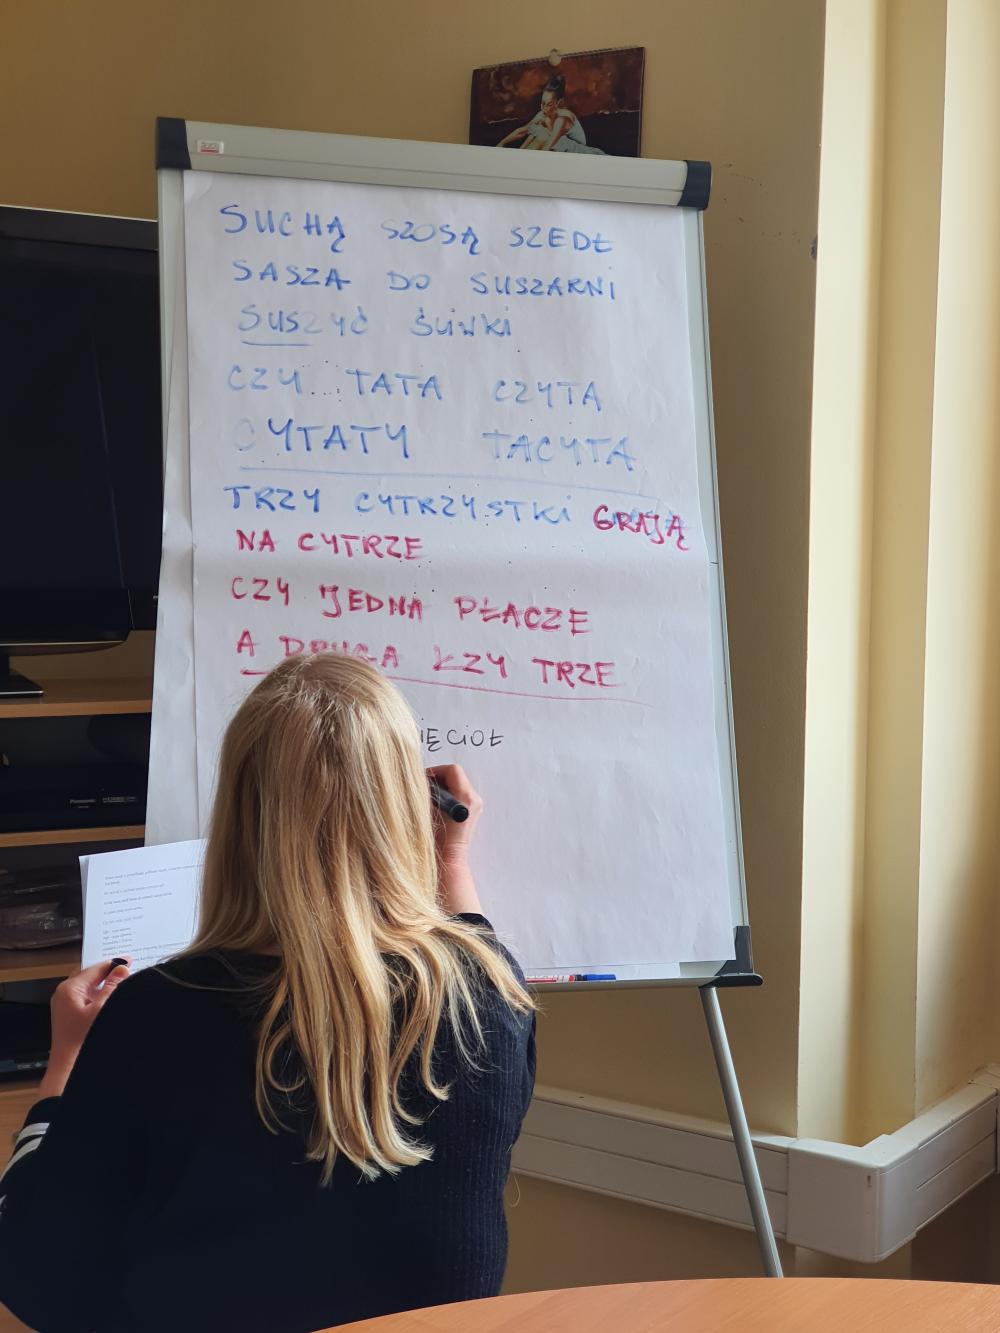 SUCHĄ SZOSĄ SZEDŁ
SASZA DO SUSZARNI
SUSZYĆ ŚLIWKI
CZY TATA CZYTA
CYTATY TACYTA
TRZY CYTRZYSTKI GRAJĄ
NA CYTRZE
CZY JEDNA PŁACZE
A DRUGA ŁZY TRZE
IĘCIOŁ
Panasonic